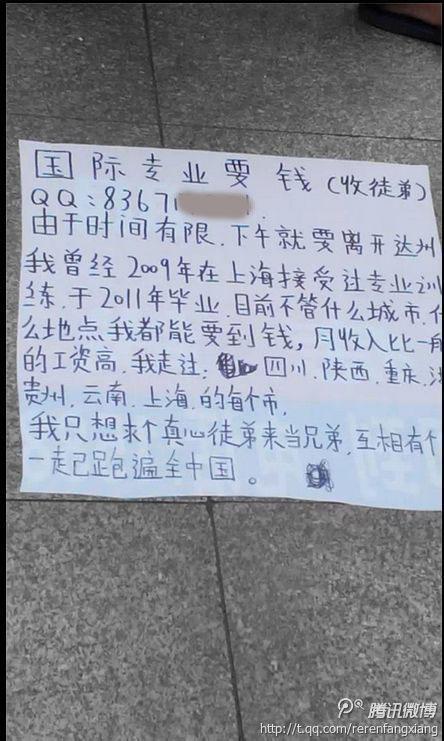 国际专业要钱(收徒弟)
QQ:83671
由于时间有限.下午就要离开达州
我曾经2009年在上海接受过专业训
练.于2011年毕业.目前不管什么城市.什
么地点我都能要到钱,月收入比一般
的工资高.我走过: 四川.陕西.重庆.
贵州.云南.上海.的每个市,
我只想求个真心徒弟来当兄弟,互相有个
一走己跑遍全中国。
腾讯微博
http://t.qq.com/rerenfangxiang